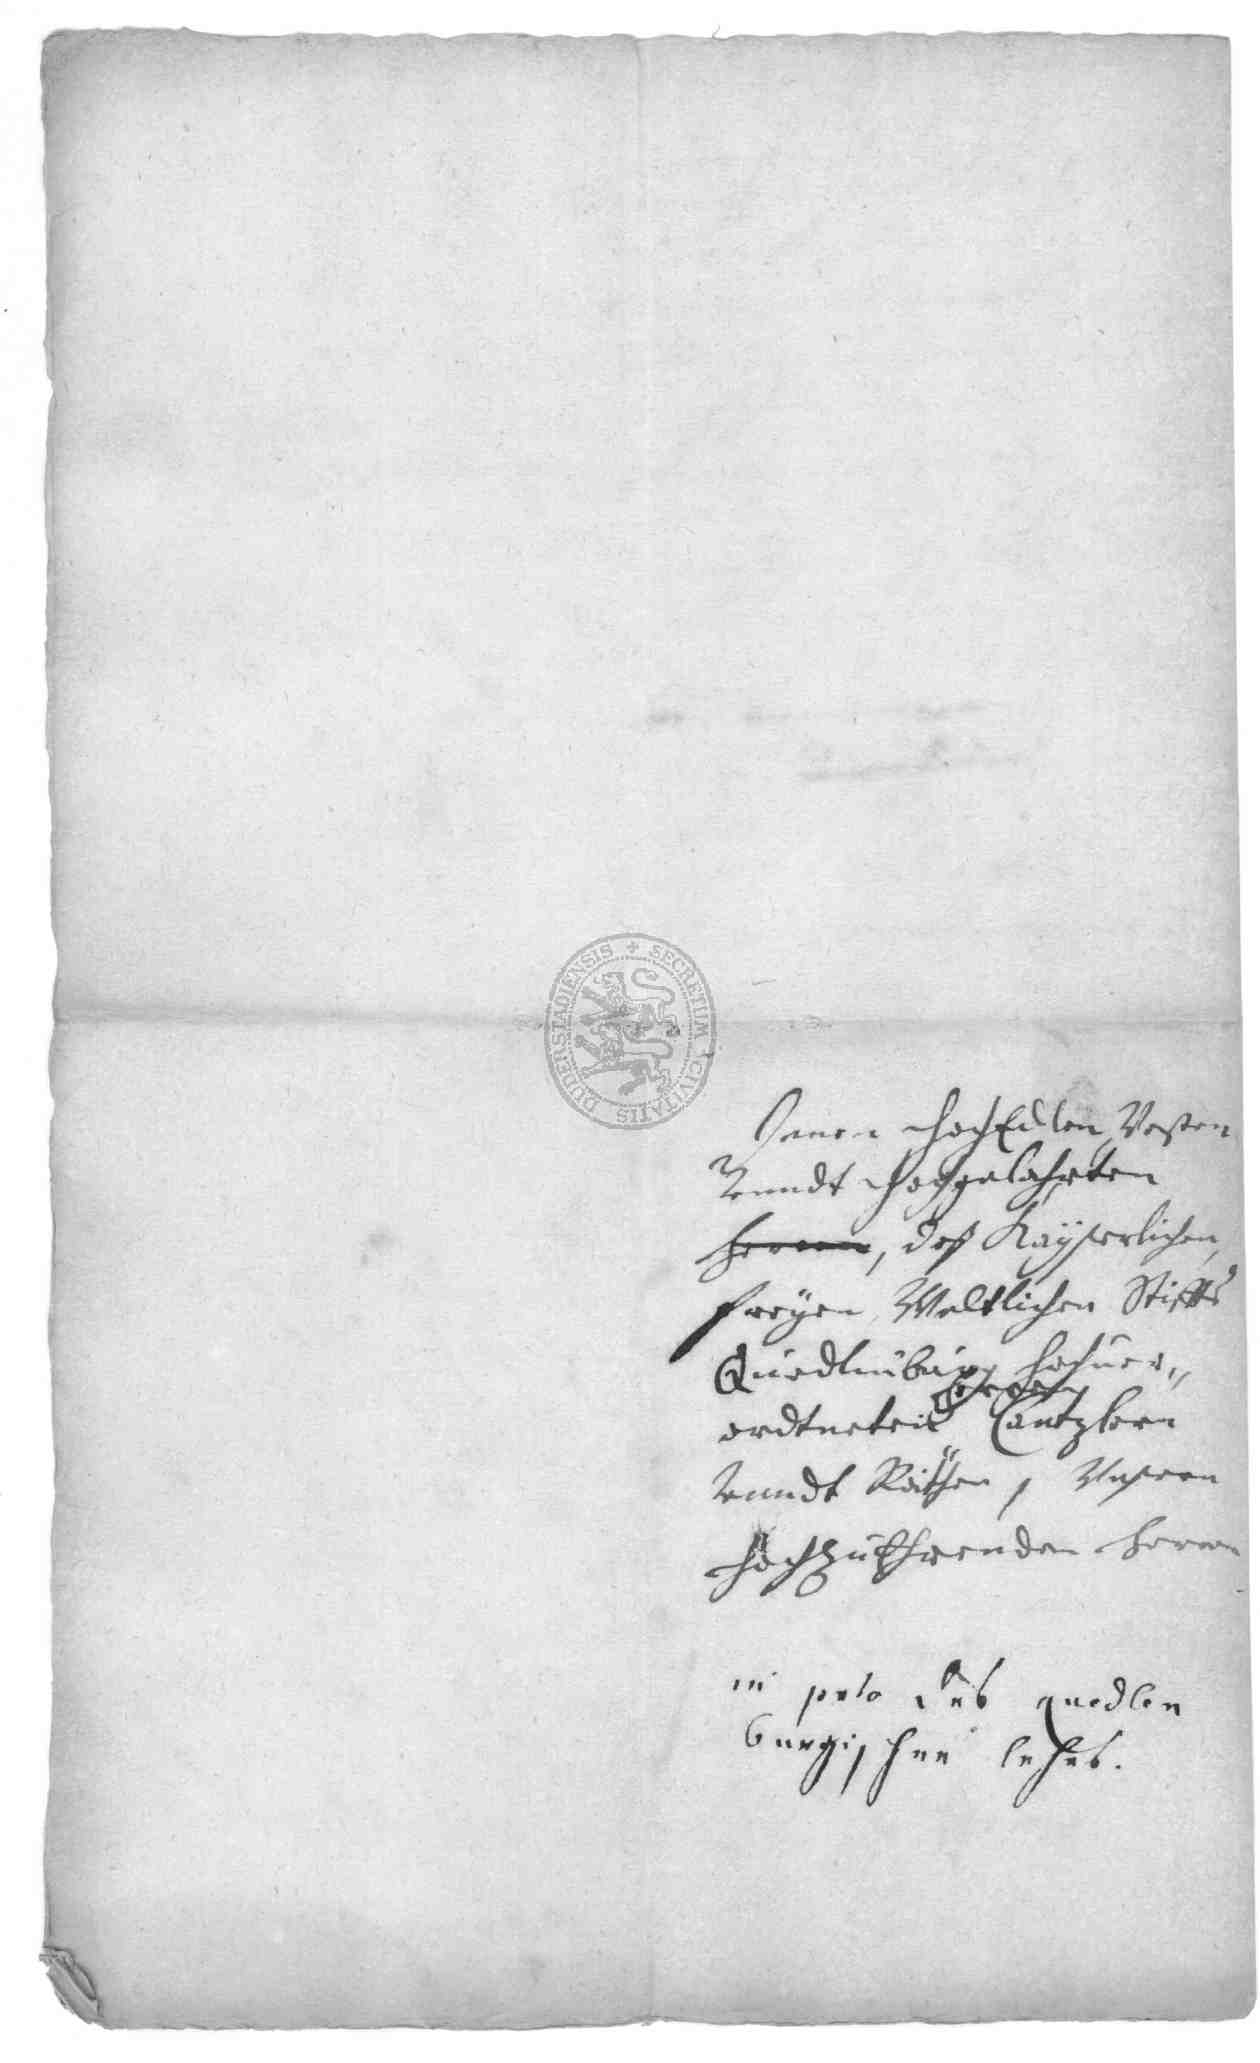 SECRETUM CIVITATIS DUDERSTADIENSIS
Denen HochEdlen, Vesten
Vnndt Hochgelahrten
Herren, deß Kayserlichen,
freÿen, Weltlichen Stiffts
Quedlinburg hochuer„
Herren
ordtneten Cantzlern
Vnndt Räthen, Vnseren
hochzuEhrenden Herren
in pcto des quedlen
burgischen lehns.